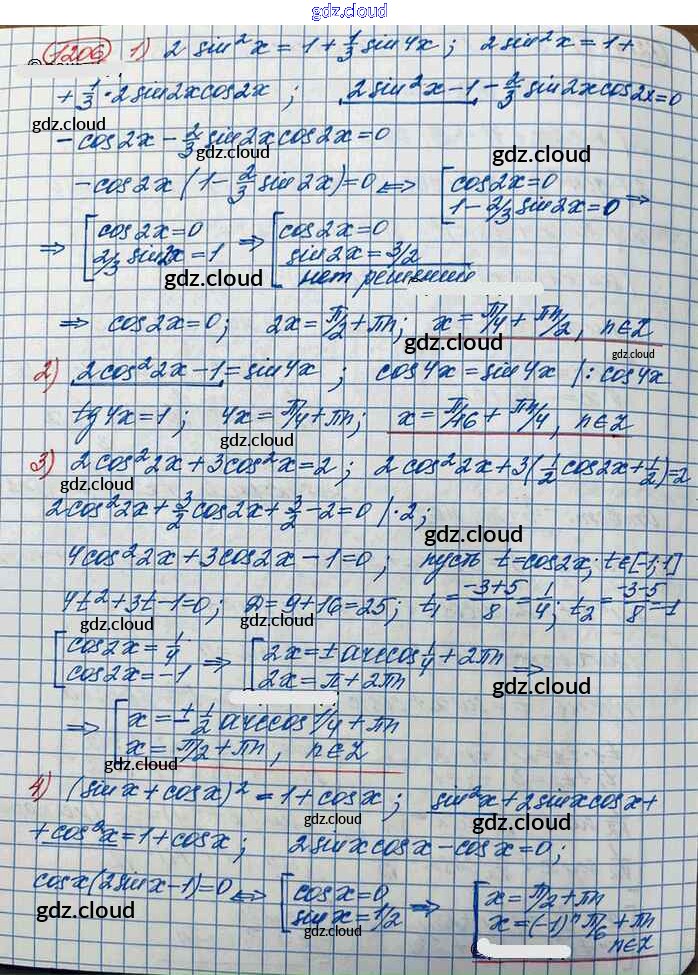 gdz.cloud
1206 1) 2 sin²x = 1 + 1/3 sin4x ; 2sin²x = 1 +
+ 1/3 · 2sin2xcos2x ; 2sin²x-1 - 2/3 sin2xcos2x=0
gdz.cloud
- cos2x - 2/3 sin2xcos2x=0
gdz.cloud
gdz.cloud
- cos2x (1 - 2/3 sin2x)=0 <=> [ cos2x=0
1 - 2/3 sin2x = 0 =>
=> [ cos2x=0
2/3 sin2x = 1 => [ cos2x=0
sin2x = 3/2
нет решений
gdz.cloud
=> cos2x=0; 2x = π/2 + πn; x = π/4 + πn/2, n∈Z
gdz.cloud
gdz.cloud
2) 2cos²2x-1 = sin4x ; cos4x = sin4x /: cos4x
tg4x=1 ; 4x = π/4 + πn; x = π/16 + πn/4, n∈Z
gdz.cloud
3) 2cos²2x + 3cos²x = 2 ; 2cos²2x + 3(1/2 cos2x + 1/2)=2
gdz.cloud
gdz.cloud
2cos²2x + 3/2 cos2x + 3/2 - 2 = 0 / ·2;
gdz.cloud
4cos²2x + 3cos2x - 1=0 ; пусть t=cos2x; t∈[-1;1]
gdz.cloud
4t²+3t-1=0; D=9+16=25; t₁ = -3+5/8 = 1/4; t₂ = -3-5/8 = -1
gdz.cloud
gdz.cloud
[ cos2x = 1/4
cos2x = -1 => [ 2x = ± arccos 1/4 + 2πn
2x = π + 2πn =>
gdz.cloud
=> [ x = ± 1/2 arccos 1/4 + πn
x = π/2 + πn, n∈Z
gdz.cloud
4) (sinx+cosx)² = 1+cosx ; sin²x+2sinxcosx+
gdz.cloud
gdz.cloud
+cos²x = 1+cosx ; 2sinxcosx - cosx = 0;
cosx(2sinx-1)=0 <=> [ cosx=0
sinx=1/2 => [ x = π/2 + πn
x = (-1)ⁿ π/6 + πn
n∈Z
gdz.cloud
gdz.cloud
gdz.cloud